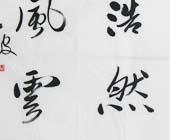 浩然
風雲